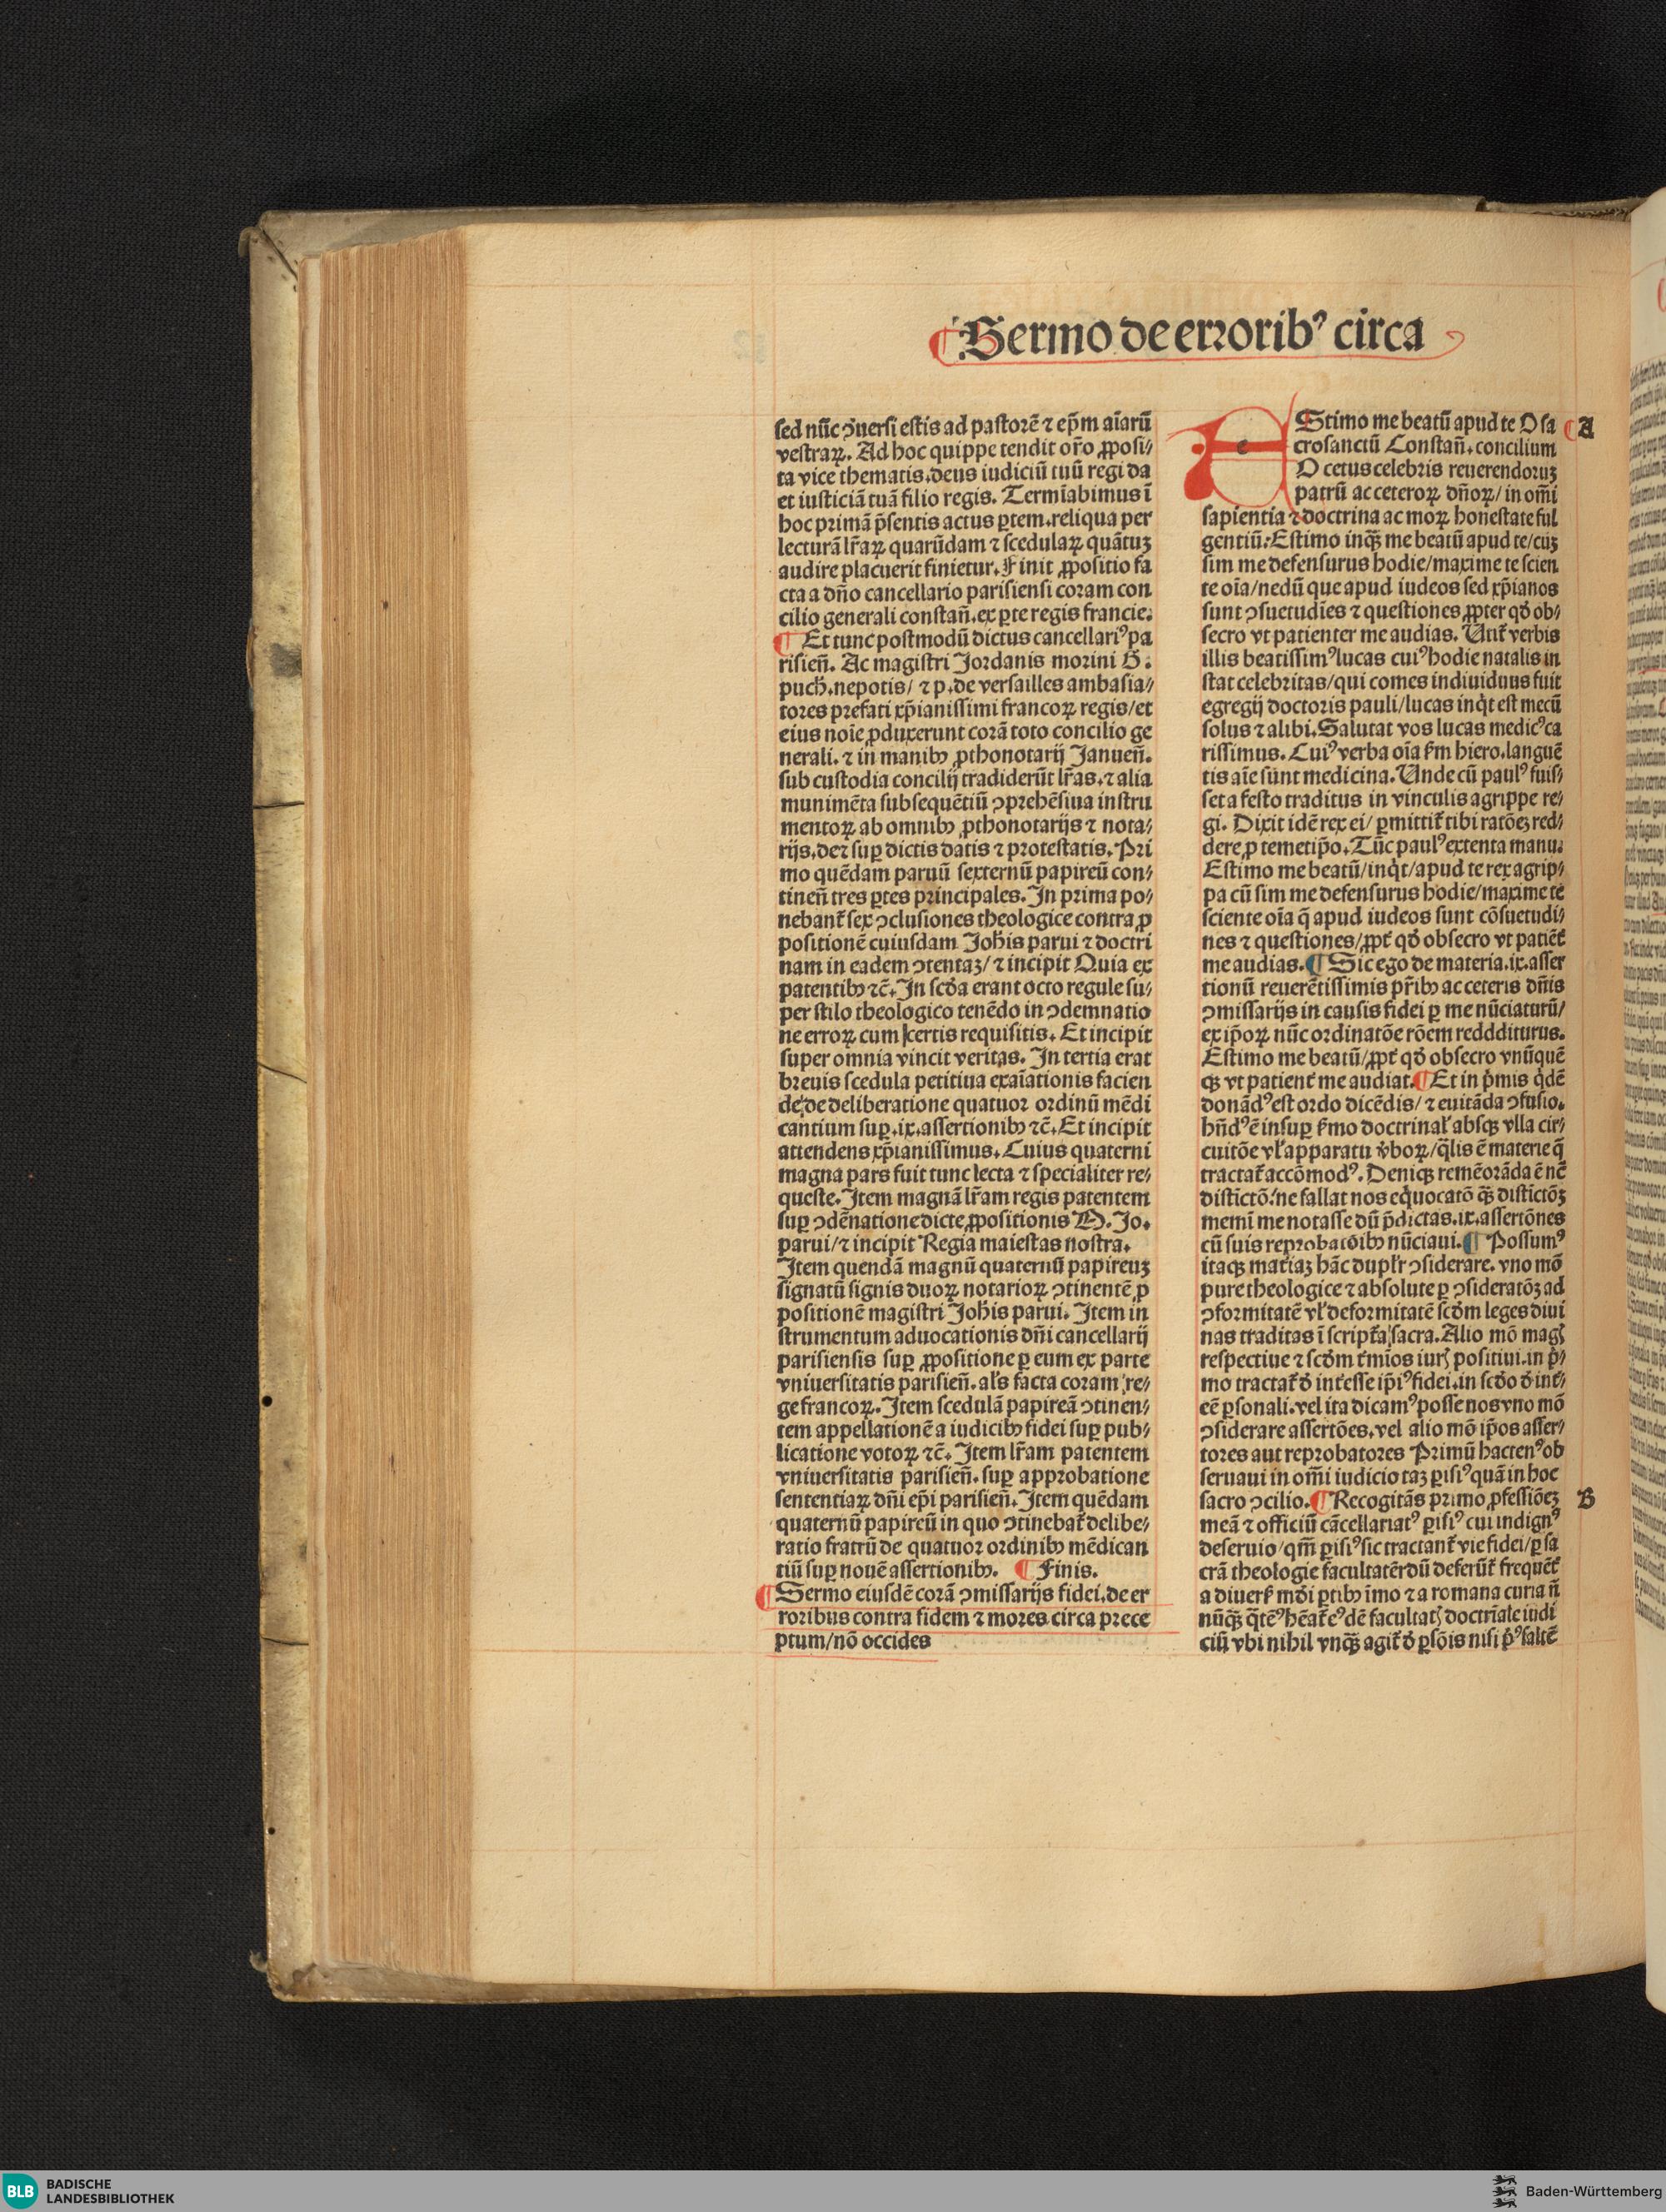 Sermo de erroribꝰ circa
sed nūc ↄuersi estis ad pastorē ⁊ ep̄m aīarū
vestraꝝ. Ad hoc quippe tendit or̄o ꝓposi⸗
ta vice thematis. deus iudiciū tuū regi da
et iusticiā tuā filio regis. Termīabimus ī
hoc primā p̄sentis actus ꝑtem. reliqua per
lecturā lr̄aꝝ quarūdam ⁊ scedulaꝝ quātuꝫ
audire placuerit finietur. Finit ꝓpositio fa
cta a dn̄o cancellario parisiensi coram con
cilio generali constan̄. ex ꝑte regis francie.
¶ Et tunc postmodū dictus cancellariꝰ pa
risien̄. Ac magistri Jordanis morini G.
puch̄. nepotis/ ⁊ p. de versailles ambasia⸗
tores prefati xp̄ianissimi francoꝝ regis/ et
eius noīe ꝓduxerunt corā toto concilio ge
nerali. ⁊ in manibꝫ ꝓthonotarij Januen̄.
sub custodia concilij tradiderūt lr̄as. ⁊ alia
munimēta subsequētiū ↄprehēsiua instru
mentoꝝ ab omnibꝫ ꝓthonotarijs ⁊ nota⸗
rijs. de⁊ suꝑ dictis datis ⁊ protestatis. Pri
mo quēdam paruū sexternū papireū con⸗
tinen̄ tres ꝑtes principales. In prima po⸗
nebant̄ sex ↄclusiones theologice contra ꝓ
positionē cuiusdam Joh̄is parui ⁊ doctri
nam in eadem ↄtentaꝫ/ ⁊ incipit Quia ex
patentibꝫ ⁊c̄. In scd̄a erant octo regule su⸗
per stilo theologico tenēdo in ↄdemnatio
ne erroꝝ cum certis requisitis. Et incipit
super omnia vincit veritas. In tertia erat
breuis scedula petitiua exaīationis facien
de/ de deliberatione quatuor ordinū mēdi
cantium suꝑ .ix. assertionibꝫ ⁊c̄. Et incipit
attendens xp̄ianissimus. Cuius quaterni
magna pars fuit tunc lecta ⁊ specialiter re⸗
queste. Item magnā lr̄am regis patentem
suꝑ ↄdēnatione dicte ꝓpositionis M. Jo.
parui/ ⁊ incipit Regia maiestas nostra.
Item quendā magnū quaternū papireuꝫ
signatū signis duoꝝ notarioꝝ ↄtinentē ꝓ
positionē magistri Joh̄is parui. Item in
strumentum aduocationis dn̄i cancellarij
parisiensis suꝑ ꝓpositione ꝑ eum ex parte
vniuersitatis parisien̄. al̄s facta coram re⸗
ge francoꝝ. Item scedulā papireā ↄtinen⸗
tem appellationē a iudicibꝫ fidei suꝑ pub⸗
licatione votoꝝ ⁊c̄. Item lr̄am patentem
vniuersitatis parisien̄. suꝑ approbatione
sententiaꝝ dn̄i ep̄i parisien̄. Item quēdam
quaternū papireū in quo ↄtinebat̄ delibe⸗
ratio fratrū de quatuor ordinibꝫ mēdican
tiū suꝑ nouē assertionibꝫ. ¶ Finis.
¶ Sermo eiusdē corā ↄmissarijs fidei. de er
roribus contra fidem ⁊ mores circa prece
ptum/ nō occides
EStimo me beatū apud te O sa
crosanctū Constan̄. concilium
O cetus celebris reuerendoruꝫ
patrū ac ceteroꝝ dn̄oꝝ/ in om̄i
sapientia ⁊ doctrina ac moꝝ honestate ful
gentiū: Estimo inqꝫ̄ me beatū apud te/ cuꝫ
sim me defensurus hodie/ maxime te scien
te oīa/ nedū que apud iudeos sed xp̄ianos
sunt ↄsuetudīes ⁊ questiones ꝓpter qd̄ ob⸗
secro vt patienter me audias. Utit̄ verbis
illis beatissimꝰ lucas cuiꝰ hodie natalis in
stat celebritas/ qui comes indiuiduus fuit
egregij doctoris pauli/ lucas inq̇t est mecū
solus ⁊ alibi. Salutat vos lucas medicꝰ ca
rissimus. Cuiꝰ verba oīa s̄m hiero. languē
tis aīe sunt medicina. Unde cū paulꝰ fuis⸗
set a festo traditus in vinculis agrippe re⸗
gi. Dixit idē rex ei/ ꝑmittit̄ tibi ratōeꝫ red⸗
dere ꝓ temetip̄o. Tūc paulꝰ extenta manu.
Estimo me beatū/ inq̇t/ apud te rex agrip⸗
pa cū sim me defensurus hodie/ maxime te
sciente oīa q̄ apud iudeos sunt cōsuetudi⸗
nes ⁊ questiones/ ꝓpt̄ qd̄ obsecro vt patiēt̄
me audias. ¶ Sic ego de materia .ix. asser
tionū reuerētissimis pr̄ibꝫ ac ceteris dn̄is
ↄmissarijs in causis fidei ꝑ me nūciaturū/
ex ip̄oꝝ nūc ordinatōe rōem reddditurus.
Estimo me beatū/ ꝓpt̄ qd̄ obsecro vnūquē
qꝫ vt patient̄ me audiat. ¶ Et in ṗmis q̇dē
donādꝰ est ordo dicēdis/ ⁊ euitāda ↄfusio.
hn̄dꝰ ē insuꝑ s̄mo doctrinal̄ absqꝫ vlla cir⸗
cuitōe vl̄ apparatu v̄boꝝ/ q̄lis ē materie q̄
tractat̄ accōmodꝰ. Deniqꝫ remēorāda ē nē
distictō: ne fallat nos eq̇uocatō qꝫ̄ distictōꝫ
memī me notasse dū p̄dictas .ix. assertōnes
cū suis reprobatōibꝫ nūciaui. ¶ Possumꝰ
itaqꝫ mat̄iaꝫ hāc dupl̄r ↄsiderare. vno mō
pure theologice ⁊ absolute ꝑ ↄsideratōꝫ ad
ↄformitatē vl̄ deformitatē scd̄m leges diui
nas traditas ī script̄a sacra. Alio mō magꝭ
respectiue ⁊ scd̄m t̄mīos iurꝭ positiui. in ṗ⸗
mo tractat̄ d̄ int̄esse ip̄iꝰ fidei. in scd̄o d̄ int̄⸗
eē ꝑsonali. vel ita dicamꝰ posse nos vno mō
ↄsiderare assertōes. vel alio mō ip̄os asser⸗
tores aut reprobatores Primū hactenꝰ ob
seruaui in om̄i iudicio taꝫ ꝑisiꝰ quā in hoc
sacro ↄcilio. ¶ Recogitās primo ꝓfessiōeꝫ
meā ⁊ officiū cācellariatꝰ ꝑisiꝰ cui indignꝰ
deseruio/ qm̄ ꝑisiꝰ sic tractant̄ vie fidei/ ꝑ sa
crā theologie facultatē/ dū deferūt̄ frequēt̄
a diuers̄ mūdi ꝑtibꝫ īmo ⁊ a romana curia n̄
nūqꝫ̄ q̄tēꝰ hēat̄ eꝰdē facultatꝭ doctrīale iudi
ciū vbi nihil vnqꝫ̄ agit̄ d̄ ꝑsōis nisi ṗꝰ saltē
A
B
BLB BADISCHE
LANDESBIBLIOTHEK
Baden-Württemberg